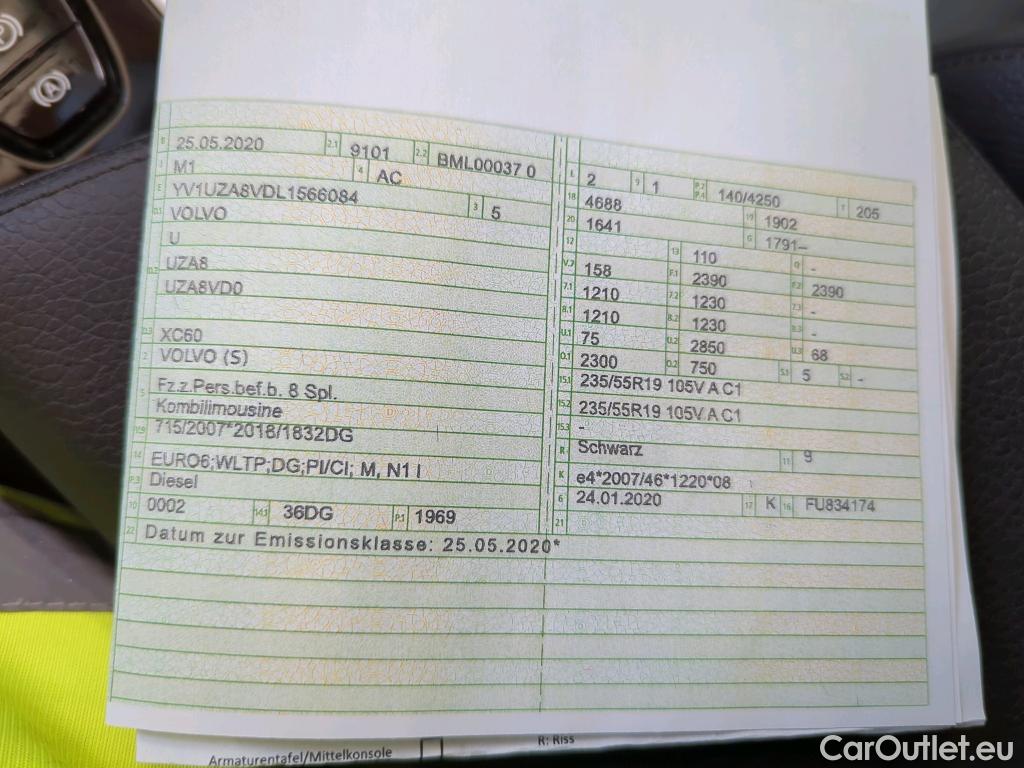 B 25.05.2020 2.1 9101 2.2 BML00037 0
J M1 4 AC
E YV1UZA8VDL1566084 3 5
D.1 VOLVO
U
D.2 UZA8
UZA8VD0
D.3 XC60
2 VOLVO (S)
5 Fz.z.Pers.bef.b. 8 Spl.
Kombilimousine
V.9 715/2007*2018/1832DG
14 EURO6;WLTP;DG;PI/CI; M, N1 I
P.3 Diesel
10 0002 14.1 36DG P.1 1969
22 Datum zur Emissionsklasse: 25.05.2020*
L 2 9 1 P.2 P.4 140/4250 T 205
18 4688 19 1902
20 1641 G 1791–
12 13 110 Q -
V.7 158 F.1 2390 F.2 2390
7.1 1210 7.2 1230 7.3 -
8.1 1210 8.2 1230 8.3 -
U.1 75 U.2 2850 U.3 68
O.1 2300 O.2 750 S.1 5 S.2 -
15.1 235/55R19 105V A C1
15.2 235/55R19 105V A C1
15.3 -
R Schwarz 11 9
K e4*2007/46*1220*08
6 24.01.2020 17 K 16 FU834174
21
Armaturentafel/Mittelkonsole
R: Riss
CarOutlet.eu